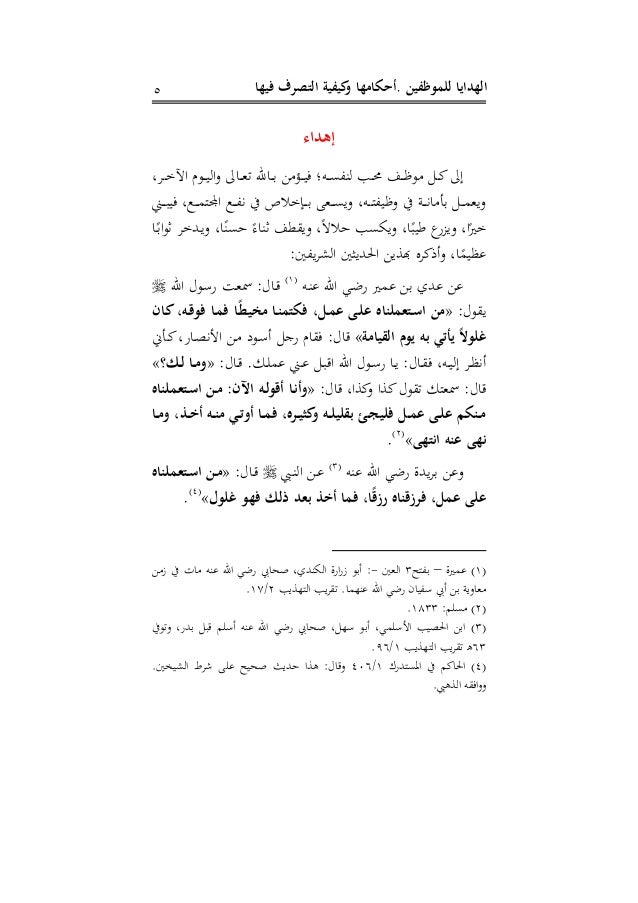 الهدايا للموظفين .أحكامها وكيفية التصرف فيها ٥
إهداء
إلى كل موظف محب لنفسه؛ فيؤمن بالله تعالى واليوم الآخر،
ويعمل بأمانة في وظيفته، ويسعى بإخلاص في نفع المجتمع، فيبني
خيرًا، ويزرع طيبًا، ويكسب حلالاً، ويقطف ثناءً حسنًا، ويدخر ثوابًا
عظيمًا، وأذكره بهذين الحديثين الشريفين:
عن عدي بن عمير رضي الله عنه (١) قال: سمعت رسول الله ﷺ
يقول: «من استعملناه على عمل، فكتمنا مخيطًا فما فوقه، كان
غلولاً يأتي به يوم القيامة» قال: فقام رجل أسود من الأنصار، كأني
أنظر إليه، فقال: يا رسول الله اقبل عني عملك. قال: «وما لك؟»
قال: سمعتك تقول كذا وكذا، قال: «وأنا أقوله الآن: من استعملناه
منكم على عمل فليجئ بقليله وكثيره، فما أوتي منه أخذ، وما
نهى عنه انتهى»(٢).
وعن بريدة رضي الله عنه (٣) عن النبي ﷺ قال: «من استعملناه
على عمل، فرزقناه رزقًا، فما أخذ بعد ذلك فهو غلول»(٤).
(١) عميرة – بفتح٣ العين –: أبو زرارة الكندي، صحابي رضي الله عنه مات في زمن
معاوية بن أبي سفيان رضي الله عنهما. تقريب التهذيب ١٧/٢.
(٢) مسلم: ١٨٣٣.
(٣) ابن الحصيب الأسلمي، أبو سهل، صحابي رضي الله عنه أسلم قبل بدر، وتوفي
٦٣هـ تقريب التهذيب ٩٦/١.
(٤) الحاكم في المستدرك ٤٠٦/١ وقال: هذا حديث صحيح على شرط الشيخين.
ووافقه الذهبي.